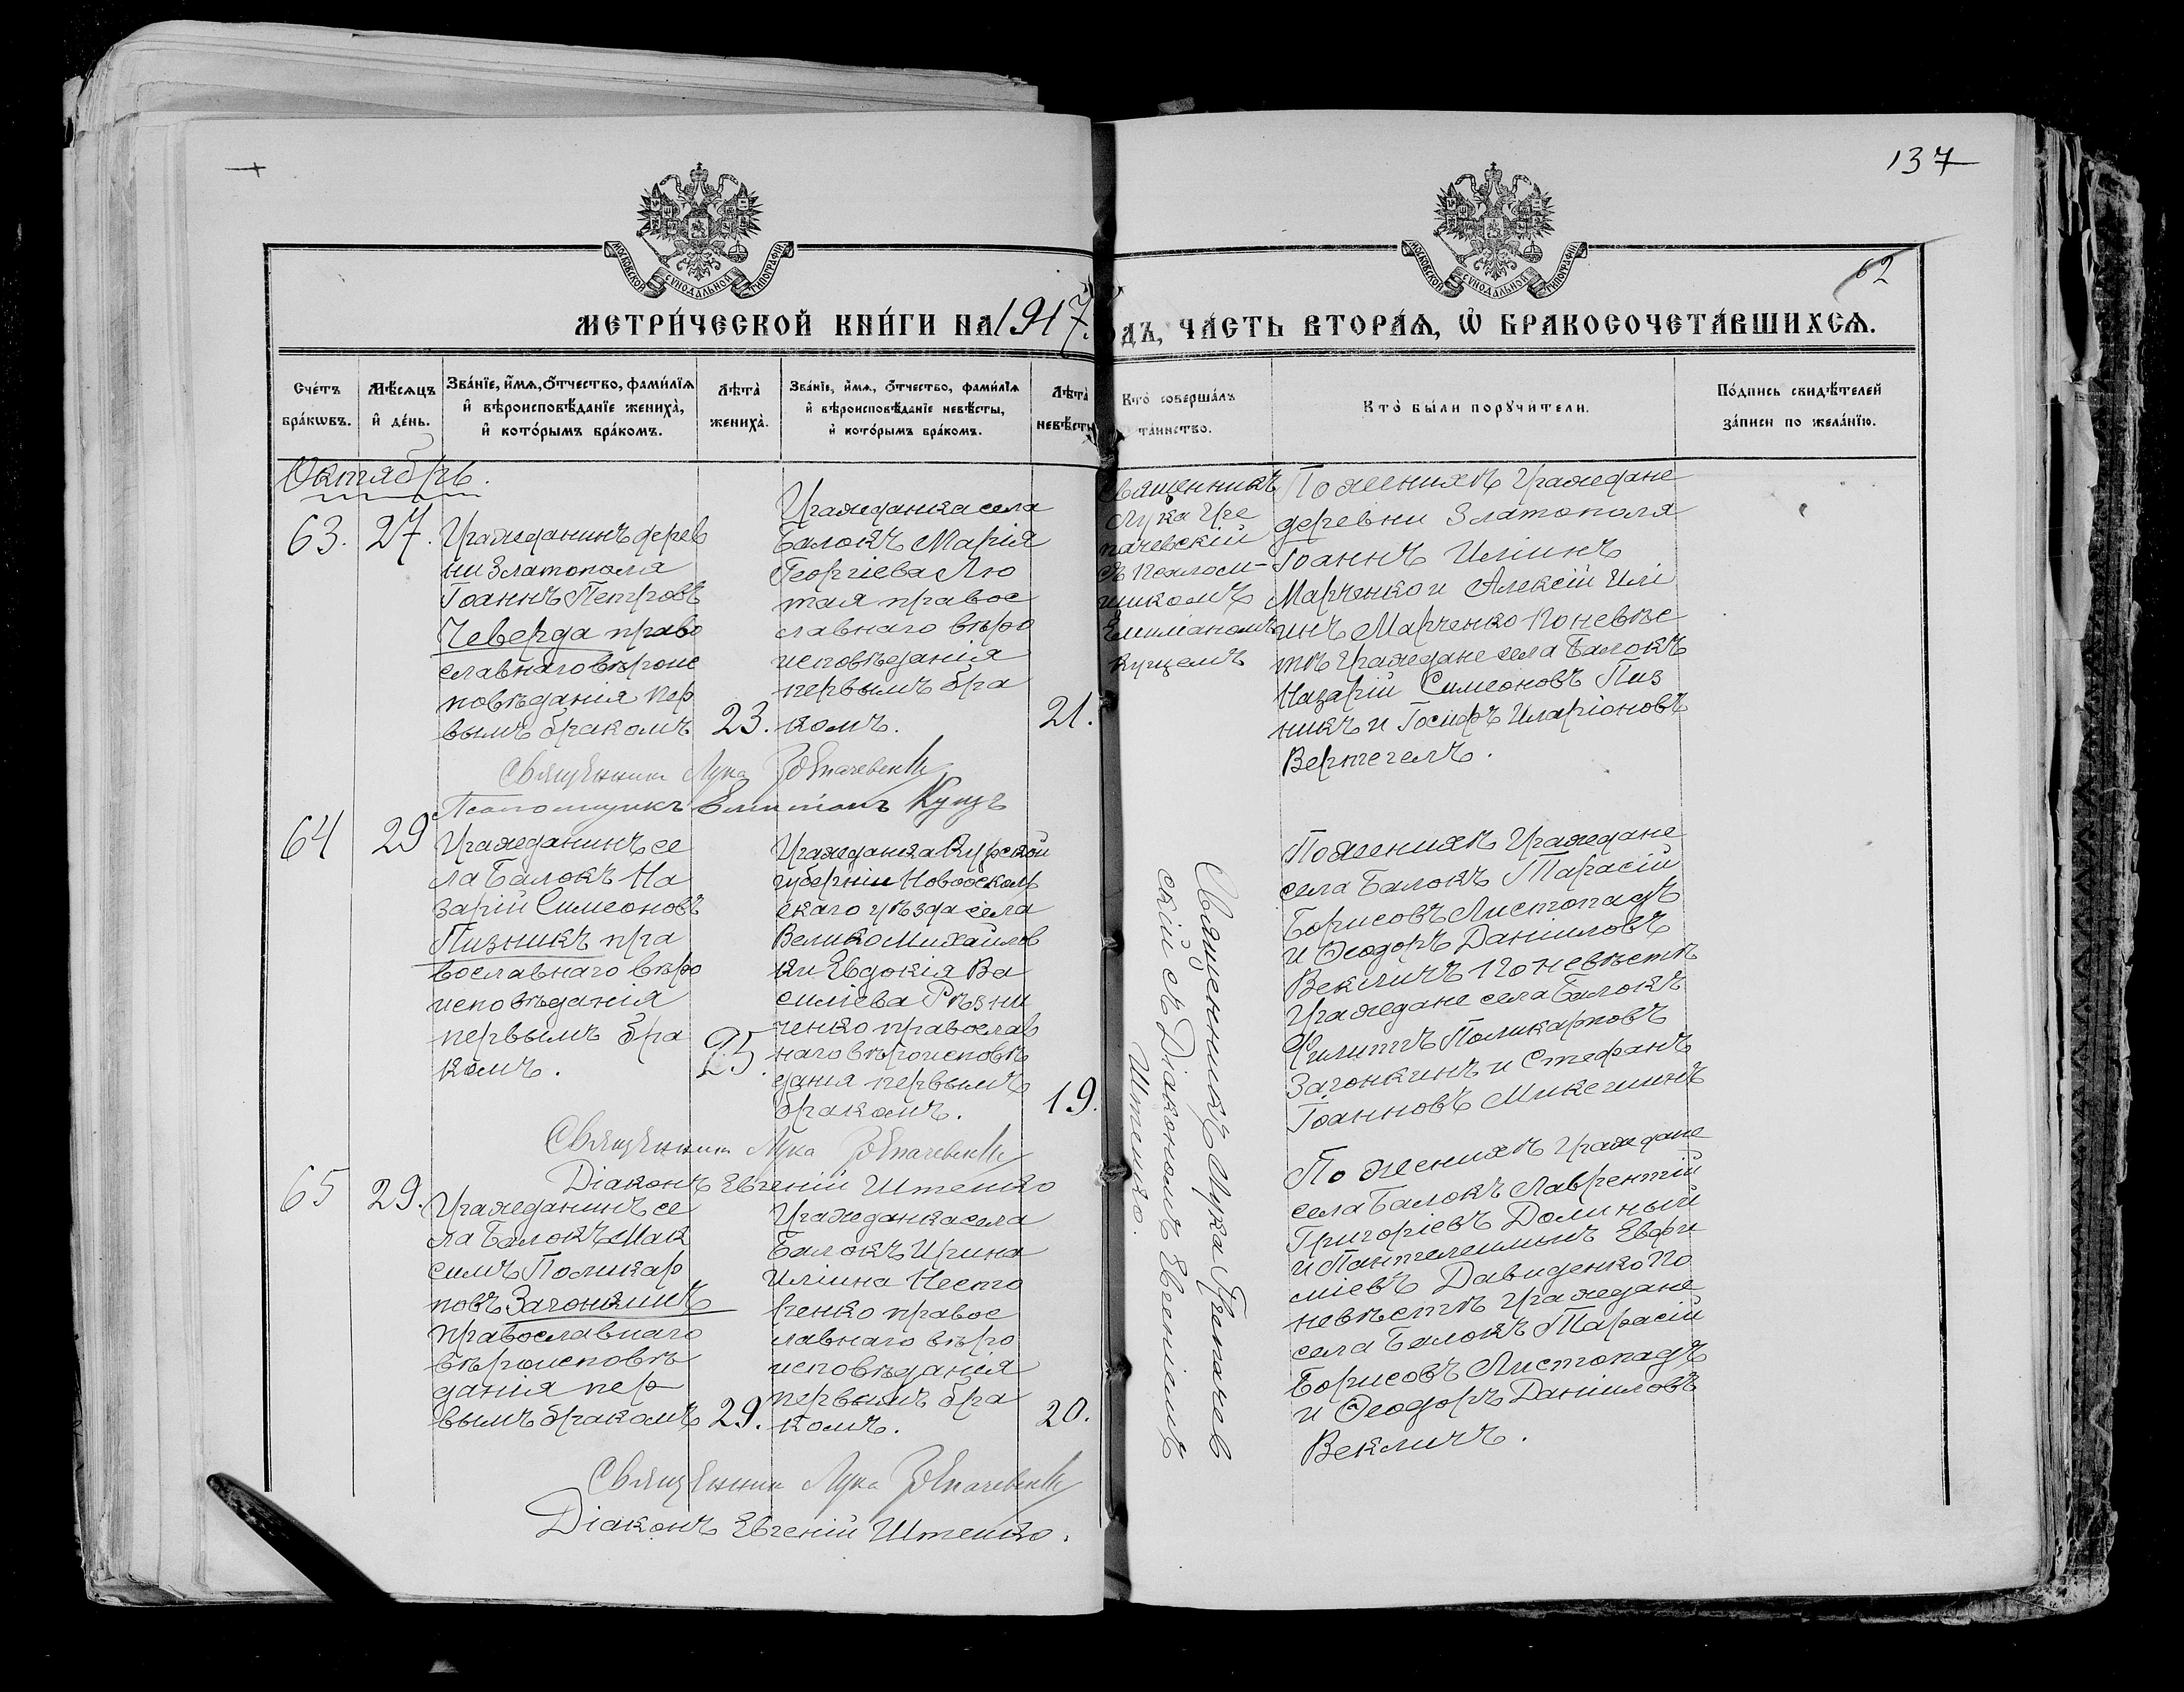 137
62
МОСКОВСКОЙ СѴНОДАЛЬНОЙ ТИПОГРАФІИ
МОСКОВСКОЙ СѴНОДАЛЬНОЙ ТИПОГРАФІИ
МЕТРИ́ЧЕСКОЙ КНИ́ГИ НА 1917. ОДЪ, ЧА́СТЬ ВТОРА́Ѧ, Ѡ҆ БРАКОСОЧЕТА́ВШИХСѦ.
Сче́тъ бра́кѡвъ.
Мѣ́сѧцъ и҆ де́нь.
Зва́нїе, и҆́мѧ, ѻ҆́тчество, фами́лїѧ
и҆ вѣроисповѣ́данїе жениха̀,
и҆ кото́рымъ бра́комъ.
Лѣта̀ жениха̀.
Зва́нїе, и҆́мѧ, ѻ҆́тчество, фами́лїѧ
и҆ вѣроисповѣ́данїе невѣ́сты,
и҆ кото́рымъ бра́комъ.
Лѣта̀ невѣ́сты
Кто̀ соверша́лъ
та́инство.
Кто̀ бы́ли порꙋчи́тели.
По́дпись свидѣ́телей
за́писи по жела́нїю.
Октябрь.
63. 27.
Гражданинъ дерев
ни Златополя
Іоаннъ Петровъ
Чеверда право
славнаго вѣроис
повѣданія пер
вымъ бракомъ
23.
Гражданка села
Балокъ Марія
Георгіева Лю
тая правос
славнаго вѣро
исповѣданія
первымъ бра
комъ.
21.
Священникъ
Лука Гре
пачевскій
съ псалом-
щикомъ
Емиліаномъ
Куцемъ
По женихѣ Граждане
деревни Златополя
Іоаннъ Иліинъ
Марченко и Алексій Илі
инъ Марченко по невѣс
тѣ Граждане села Балокъ
Назарій Симеоновъ Пиз
никъ и Іосифъ Иларіоновъ
Вертегелъ.
Священник Лука Грепачевскій
Псаломщикъ Емиліанъ Куцъ
64 29
Гражданинъ се
ла Балокъ На
зарій Симеоновъ
Пизникъ пра
вославнаго вѣро
исповѣданія
первымъ бра
комъ.
25.
Гражданка Курской
губерніи Новооскол
скаго уѣзда села
Велико Михайлов
ки Евдокія Ва
силіева Рѣзни
ченко православ
наго вѣроисповѣ
данія первымъ
бракомъ.
19.
Священникъ Лука Грепачев
скій съ Діакономъ Евгеніемъ
Штепко.
По женихѣ Граждане
села Балокъ Тарасій
Борисовъ Листопадъ
и Ѳеодоръ Даніиловъ
Векличъ по невѣстѣ
Граждане села Балокъ
Филиппъ Поликарповъ
Загонкинъ и Стефанъ
Іоанновъ Микешинъ
Священник Лука Грепачевскій
Діаконъ Евгеній Штепко
65 29.
Гражданинъ се
ла Балокъ Мак
симъ Поликар
повъ Загонкинъ
православнаго
вѣроисповѣ
данія пер
вымъ бракомъ
29.
Гражданка села
Балокъ Ирина
Иліина Несто
ренко правос
лавнаго вѣро
исповѣданія
первымъ бра
комъ.
20.
По женихѣ Граждане
села Балокъ Лаврентій
Григоріевъ Долиный
и Пантелеимонъ Евфи
міевъ Давиденко По
невѣстѣ Граждане
села Балокъ Тарасій
Борисовъ Листопадъ
и Ѳеодоръ Даніиловъ
Векличъ.
Священник Лука Грепачевскій
Діаконъ Евгеній Штепко.